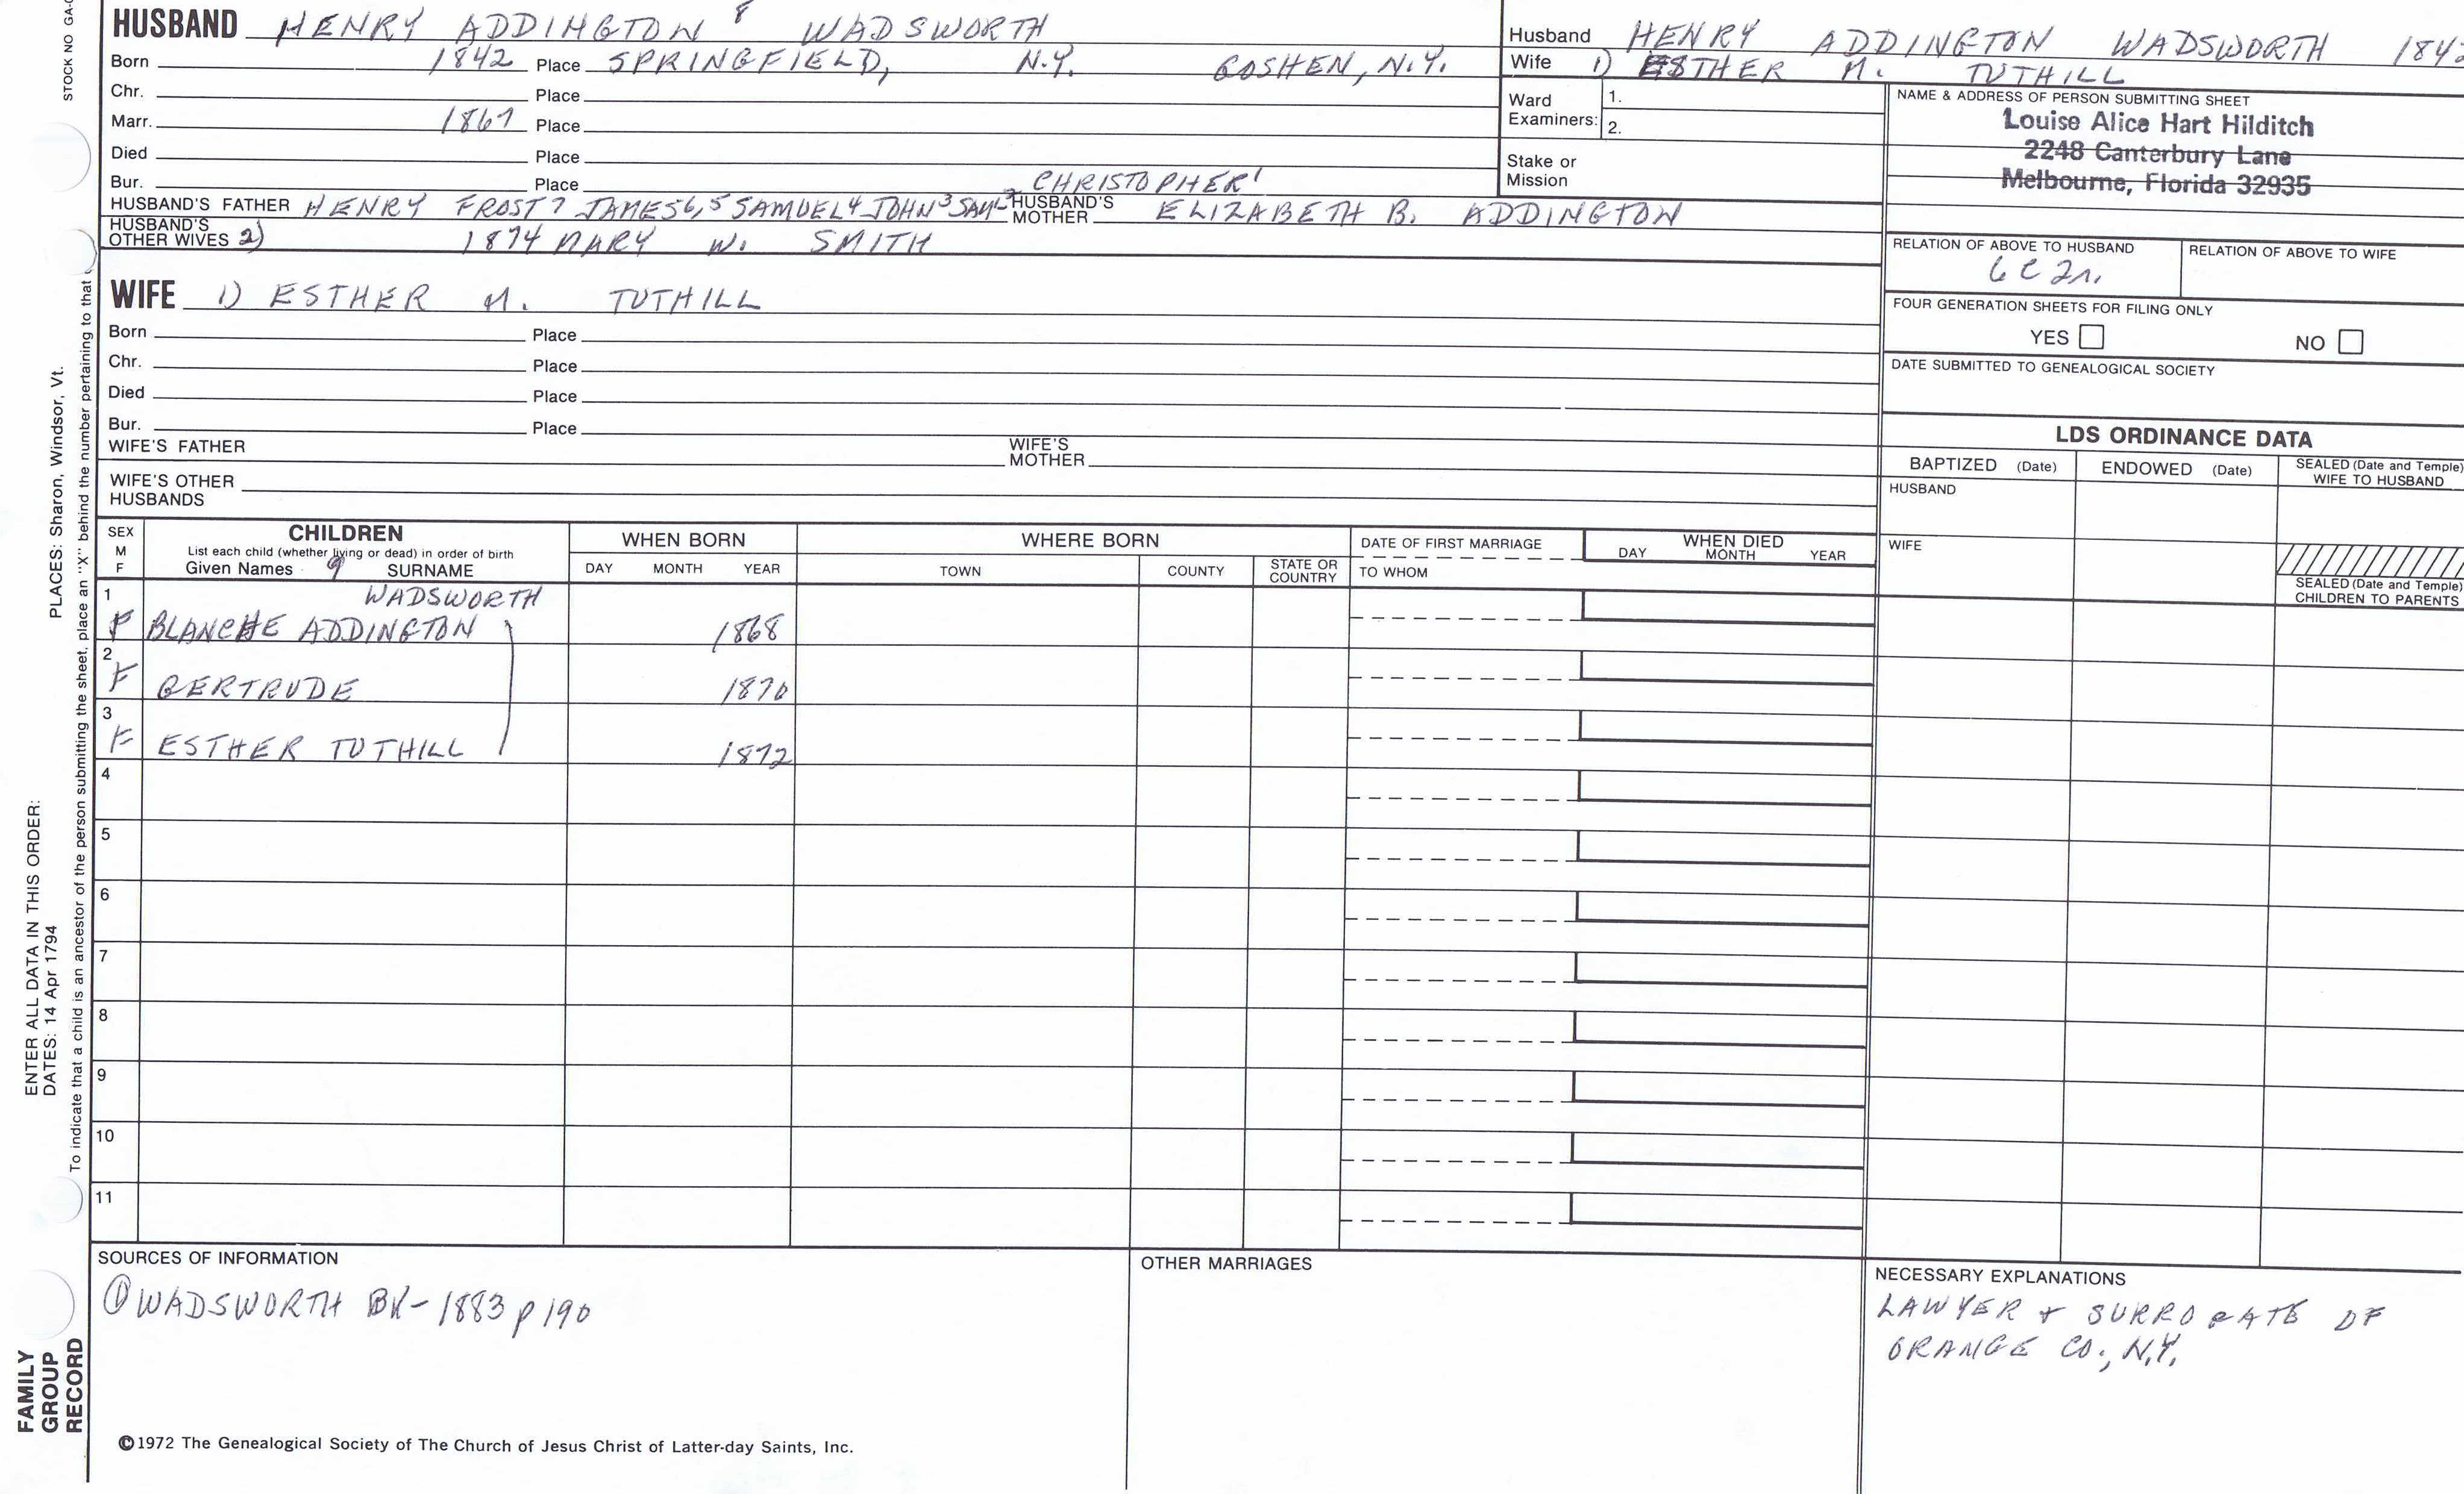 STOCK NO GA-
HUSBAND HENRY ADDINGTON 8 WADSWORTH
Born 1842 Place SPRINGFIELD, N.Y. GOSHEN, N.Y.
Chr. Place
Marr. 1867 Place
Died Place
Bur. Place CHRISTOPHER 1
HUSBAND'S FATHER HENRY FROST 7 JAMES 6,5 SAMUEL 4 JOHN 3 SAML 2 HUSBAND'S MOTHER ELIZABETH B. ADDINGTON
HUSBAND'S OTHER WIVES 2) 1874 MARY W. SMITH
Husband HENRY ADDINGTON WADSWORTH 1842
Wife 1) ESTHER M. TUTHILL
Ward Examiners: 1.
2.
Stake or Mission
NAME & ADDRESS OF PERSON SUBMITTING SHEET
Louise Alice Hart Hilditch
2248 Canterbury Lane
Melbourne, Florida 32935
RELATION OF ABOVE TO HUSBAND RELATION OF ABOVE TO WIFE
6C 2r.
FOUR GENERATION SHEETS FOR FILING ONLY
YES NO
DATE SUBMITTED TO GENEALOGICAL SOCIETY
WIFE 1) ESTHER M. TUTHILL
Born Place
Chr. Place
Died Place
Bur. Place
WIFE'S FATHER WIFE'S MOTHER
WIFE'S OTHER HUSBANDS
LDS ORDINANCE DATA
BAPTIZED (Date) ENDOWED (Date) SEALED (Date and Temple) WIFE TO HUSBAND
HUSBAND
WIFE
SEALED (Date and Temple) CHILDREN TO PARENTS
SEX M F
CHILDREN
List each child (whether living or dead) in order of birth
Given Names 9 SURNAME
WHEN BORN
DAY MONTH YEAR
WHERE BORN
TOWN COUNTY STATE OR COUNTRY
DATE OF FIRST MARRIAGE
TO WHOM
WHEN DIED
DAY MONTH YEAR
1 WADSWORTH
F BLANCHE ADDINGTON 1868
2
F GERTRUDE 1870
3
F ESTHER TUTHILL 1872
4
5
6
7
8
9
10
11
SOURCES OF INFORMATION
① WADSWORTH BK-1883 p 190
OTHER MARRIAGES
NECESSARY EXPLANATIONS
LAWYER + SURROGATE OF
ORANGE CO., N.Y.
©1972 The Genealogical Society of The Church of Jesus Christ of Latter-day Saints, Inc.
FAMILY
GROUP
RECORD
ENTER ALL DATA IN THIS ORDER:
DATES: 14 Apr 1794
PLACES: Sharon, Windsor, Vt.
To indicate that a child is an ancestor of the person submitting the sheet, place an "X" behind the number pertaining to that